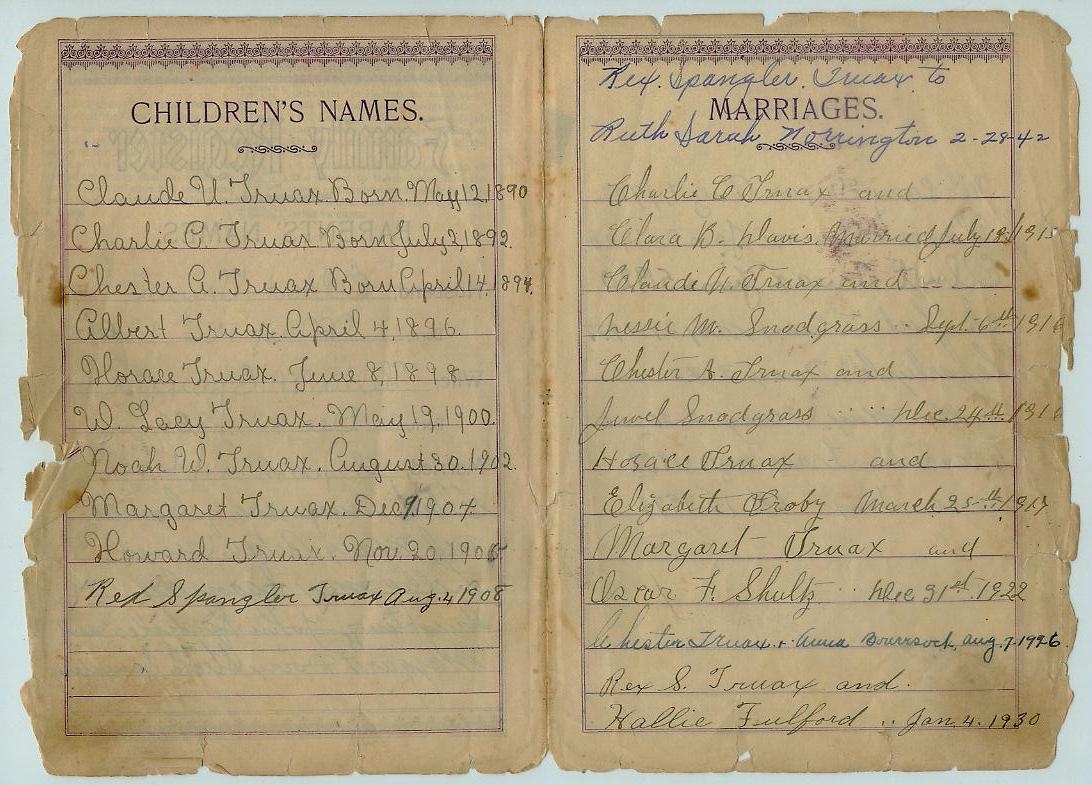 CHILDREN'S NAMES.
Claude U. Truax Born May 12, 1890
Charlie C. Truax Born July 3, 1892
Chester A. Truax Born April 14, 1894.
Albert Truax. April 4, 1896.
Horace Truax. June 8, 1898.
W. Lacy Truax. May 19, 1900.
Noah W. Truax. August 30. 1902.
Margaret Truax. Dec 9 1904.
Howard Truax. Nov. 20. 1906
Rex Spangler Truax Aug. 4 1908
Rex. Spangler. Truax to
MARRIAGES.
Ruth Sarah Norrington 2-28-42
Charlie C Truax and
Clara B. Davis. Married July 18, 1915
Claude U. Truax and
Nessie M. Snodgrass .. Sept. 6th 1916
Chester A. Truax and
Jewel Snodgrass Dec. 24th 1916
Horace Truax - and
Elizabeth Croby March 25th 1917
Margaret Truax and
Oscar F. Shultz Dec 31st. 1922
Chester Truax. + Anna aug. 7-1926
Rex S. Truax and.
Hallie Fulford .. Jan. 4. 1930